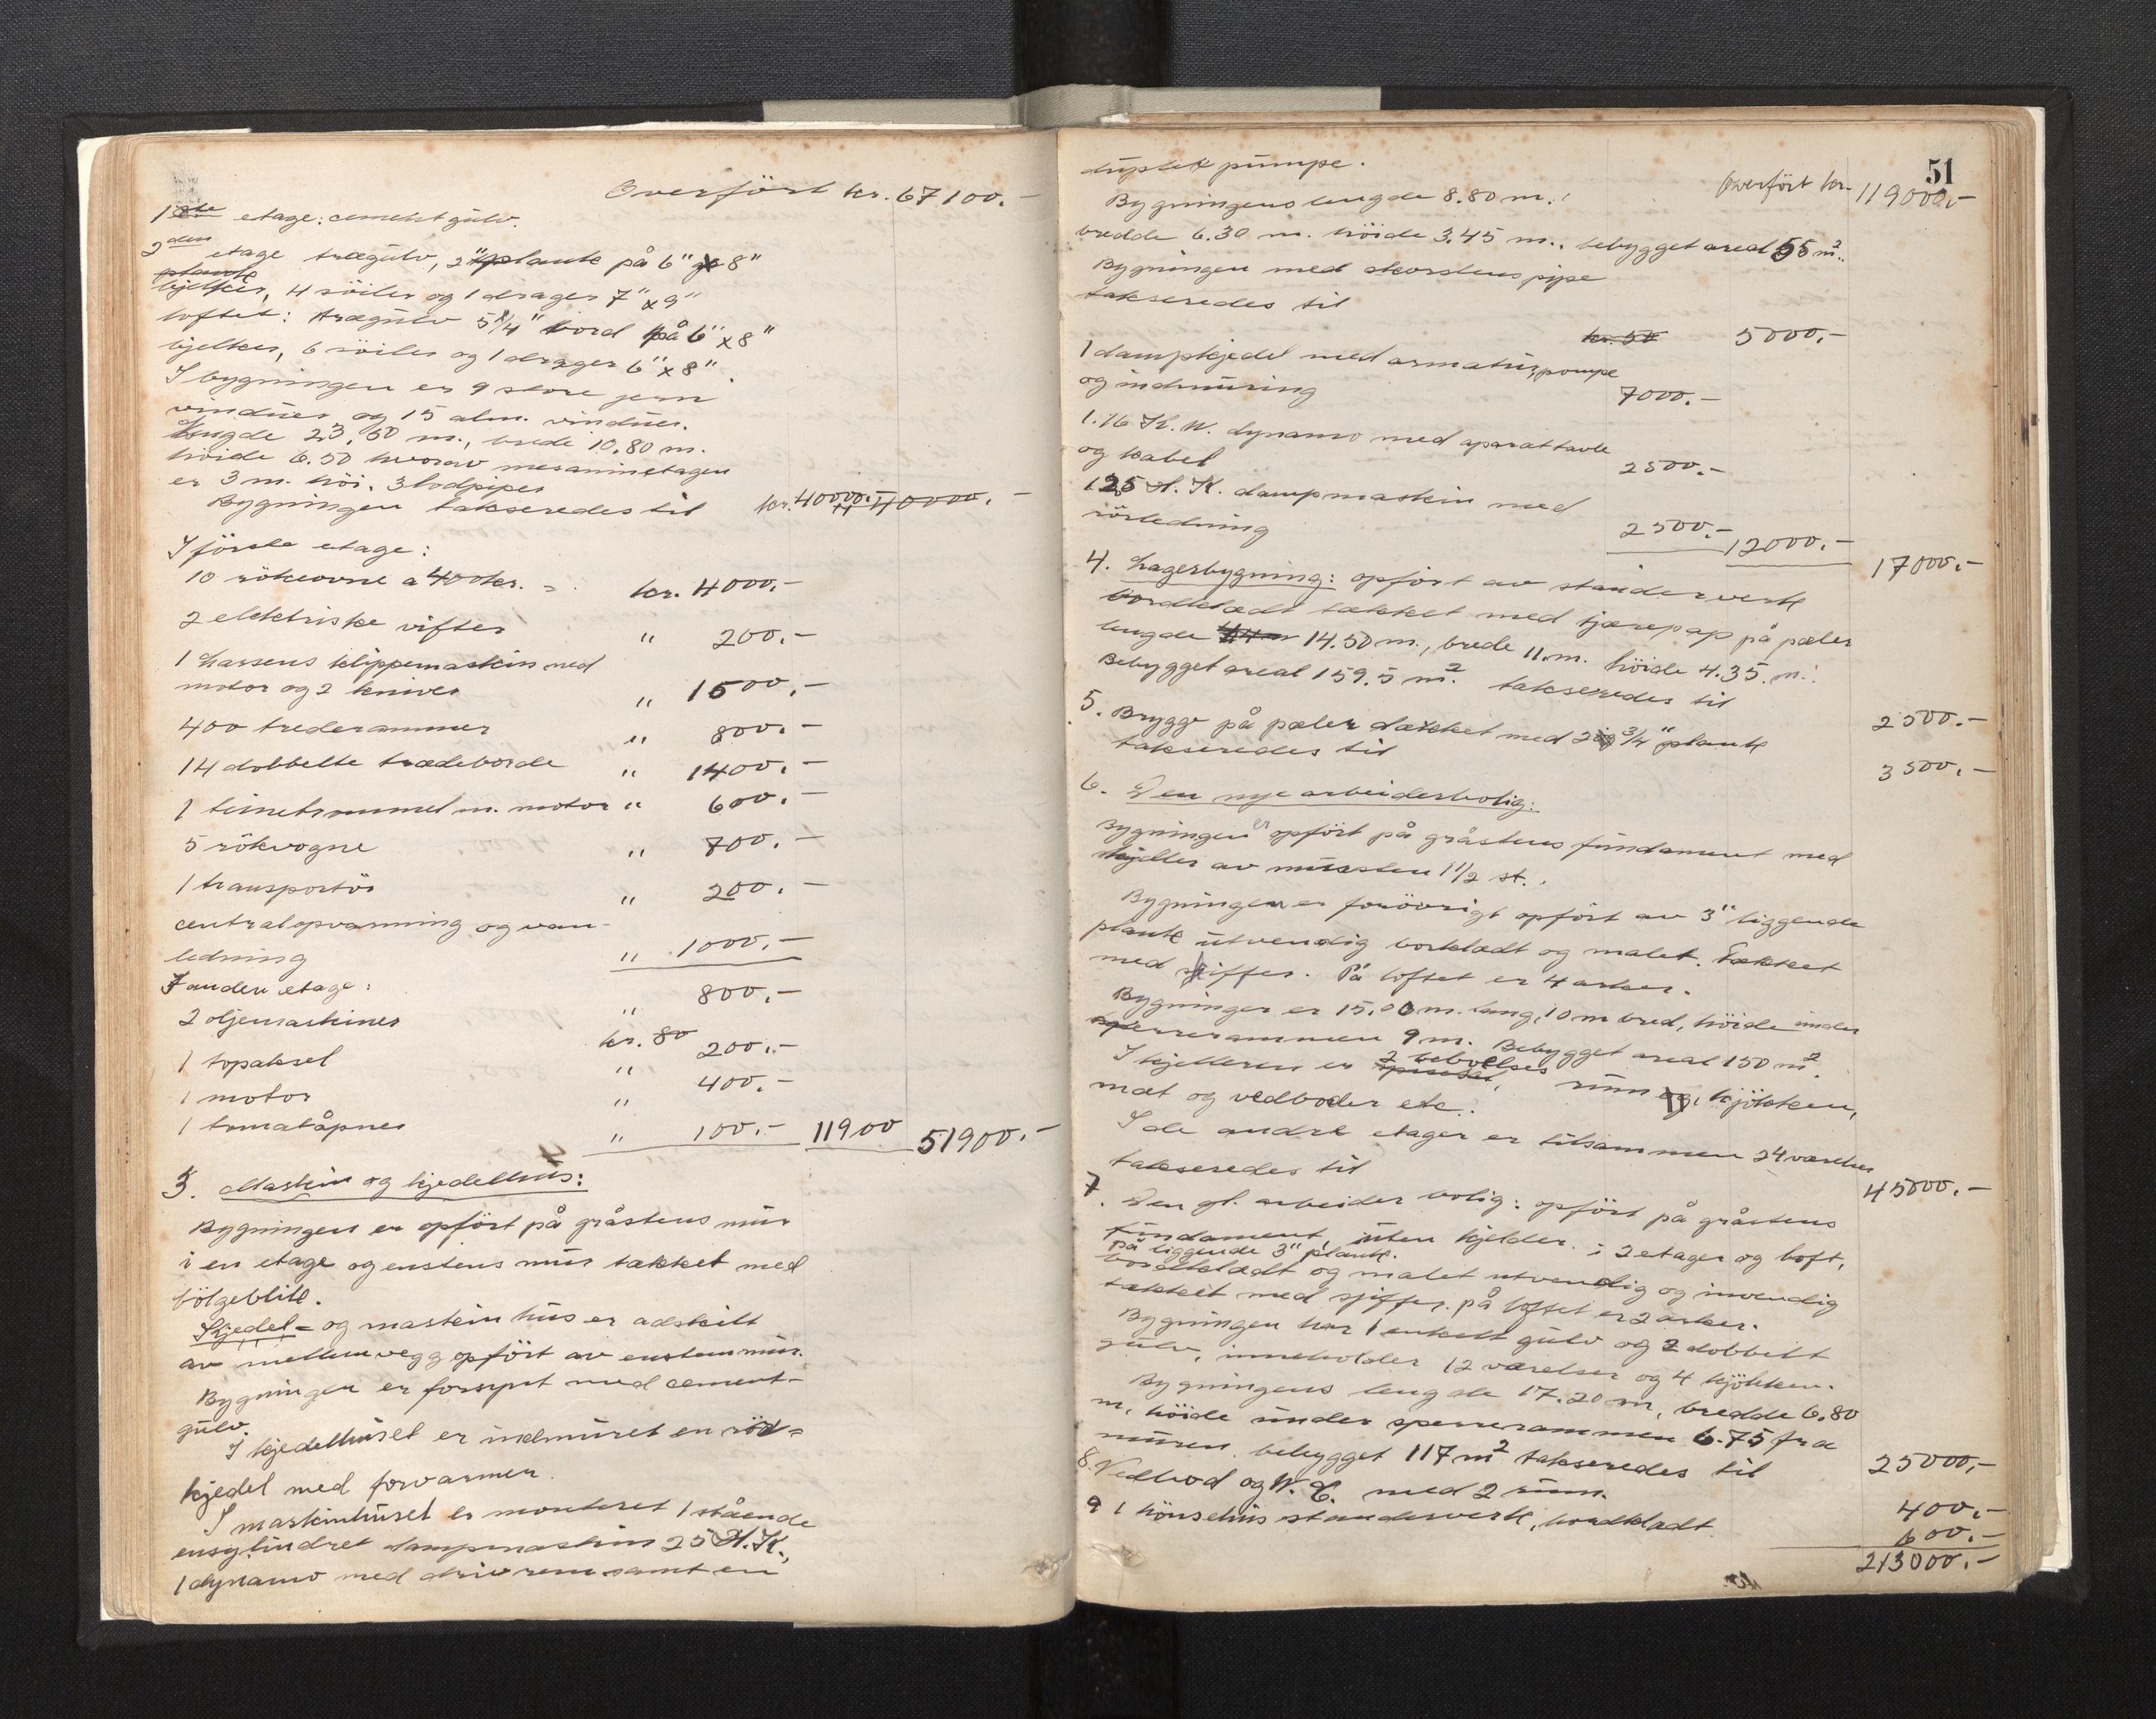 Overført kr. 67100.-
1ste etage: cementgulv.
2den etage trægulv, 2" planke på 6" x 8"
bjelker, 4 söiler og 1 drager 7" x 9"
loftet: trægulv 5/4" bord på 6" x 8"
bjelker, 6 söiler og 1 drager 6" x 8".
I bygningen er 9 store jern
vinduer og 15 alm. vinduer.
Længde 23,50 m., brede 10.80 m.
höide 6.50 hvorav mesaninetagen
er 3 m. höi. 3 lodpiper
Bygningen takseredes til kr. 40000.- 40000.-
I förste etage:
10 rökeovne a 400 kr. = kr. 4000.-
2 elektriske vifter " 200.-
1 Larsens klippemaskin med
motor og 2 kniver " 1500.-
400 trederammer " 800.-
14 dobbelte trædeborde " 1400.-
1 tinetrommel m. motor " 600.-
5 rökvogne " 700.-
1 transportör " 200.-
centralopvarming og van-
ledning " 1000.-
I anden etage:
2 oljemaskiner " 800.-
1 topaksel kr. 80 200.-
1 motor " 400.-
1 tomatåpner " 100.- 11900 51900.-
3. Maskin og kjedelhus:
Bygningen er opfört på gråstens mur
i en etage og enstens mur takket med
bölgeblik.
Kjedel- og maskinhus er adskilt
av mellemvegg opfört av enstens mur.
Bygningen er forsynt med cement-
gulv.
I kjedelhuset er indmuret en rör-
kjedel med forvarmer.
I maskinhuset er monteret 1 stående
ensylindret dampmaskin 25 H.K.,
1 dynamo med drivrem samt en
51
duplex pumpe.
Overfört kr. 119000.-
Bygningens lengde 8.80 m.,
bredde 6.30 m. höide 3.45 m., bebygget areal 55 m².
Bygningen med skorstenspipe
takseredes til kr. 50 5000.-
1 dampkjedel med armatur, pompe
og indmuring 7000.-
1. 16 K.W. dynamo med aparattavle
og kabel 2500.-
1 25 H.K. dampmaskin med
rörledning 2500.- 12000.- 17000.-
4. Lagerbygning: opfört av stenderverk
bordklædt tækket med tjærepap på pæler
lengde 14.50 m., brede 11. m. höide 4.35. m.
Bebygget areal 159.5 m². takseredes til 2500.-
5. Brygge på pæler dækket med 2 3/4" plank
takseredes til 3500.-
6. Den nye arbeiderbolig:
Bygningen er opfört på gråstens fundament med
kjelder av mursten 1 1/2 st.
Bygningen er forövrigt opfört av 3" liggende
plank utvendig borklædt og malet. Tækket
med skiffer. På loftet er 4 arker.
Bygningen er 15.00 m. lang, 10 m bred, höide under
sperrerammen 9 m. Bebygget areal 150 m².
I kjelleren er 2 beboelses rum og, kjökken,
mat og vedboder etc..
I de andre etager er tilsammen 24 værelser
takseredes til 45000.-
7. Den gl. arbeider bolig: opfört på gråstens
fundament, uten kjelder. i 2 etager og loft,
på liggende 3" plank.
bordklædt og malet utvendig og invendig
tækket med sjiffer. på loftet er 2 arker.
Bygningen har 1 enkelt gulv og 2 dobbelt
gulv, inneholder 12 værelser og 4 kjökken.
Bygningens lengde 17.20 m, bredde 6.80
m, höide under sperrerammen 6.75 fra
muren. bebygget 117 m² takseredes til 25000.-
8. Vedbod og W.C. med 2 rum. 400.-
9 1 hönsehus stenderverk, bordklædt 600.-
213000.-